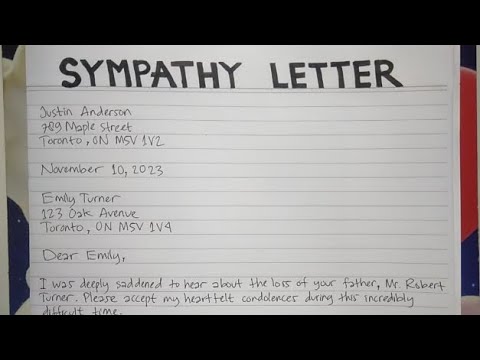 SYMPATHY LETTER
Justin Anderson
789 Maple Street
Toronto, ON M5V 1V2
November 10, 2023
Emily Turner
123 Oak Avenue
Toronto, ON M5V 1V4
Dear Emily,
I was deeply saddened to hear about the loss of your father, Mr. Robert
Turner. Please accept my heartfelt condolences during this incredibly
difficult time.